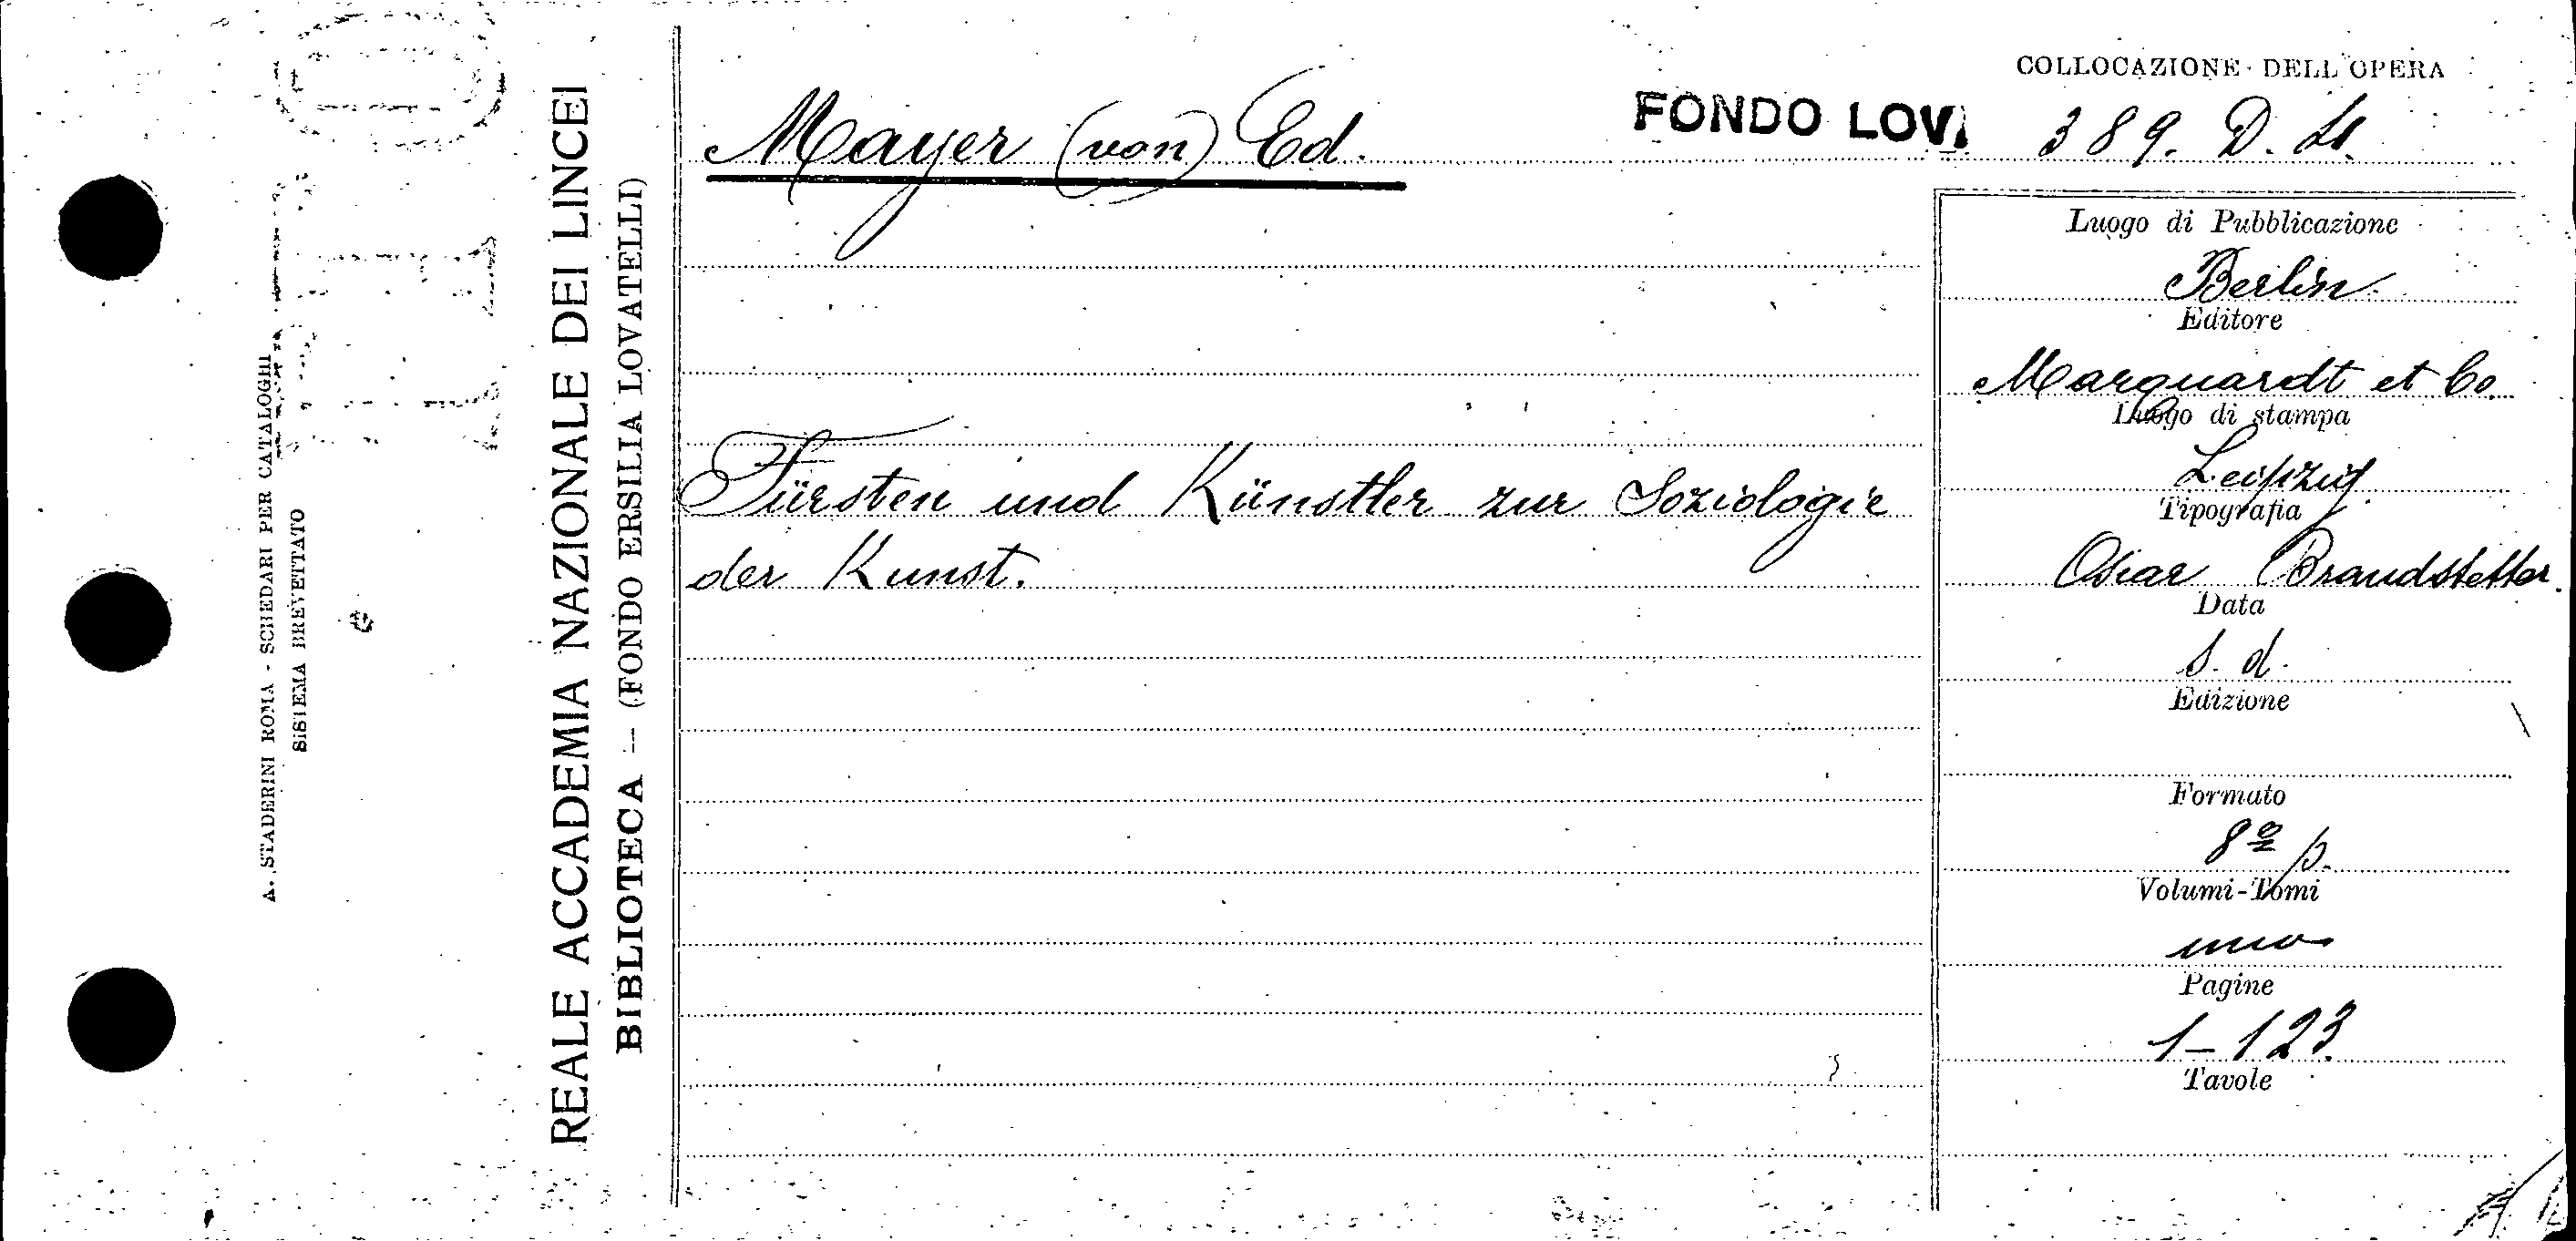 COLLOCAZIONE DELL'OPERA
Mayer (von) Ed.
FONDO LOV.
389. D.
Fürsten und Künstler zur Soziologie
der Kunst.
Luogo di Pubblicazione
Berlin
Editore
Marquardt et Co.
Luogo di stampa
Leipzig
Tipografia
Oscar Brandstetter
Data
s. d.
Edizione
Formato
8º p.
Volumi-Tomi
uno
Pagine
1-123
Tavole
REALE ACCADEMIA NAZIONALE DEI LINCEI
BIBLIOTECA – (FONDO ERSILIA LOVATELLI)
A. STADERINI ROMA - SCHEDARI PER CATALOGHI
SISTEMA BREVETTATO